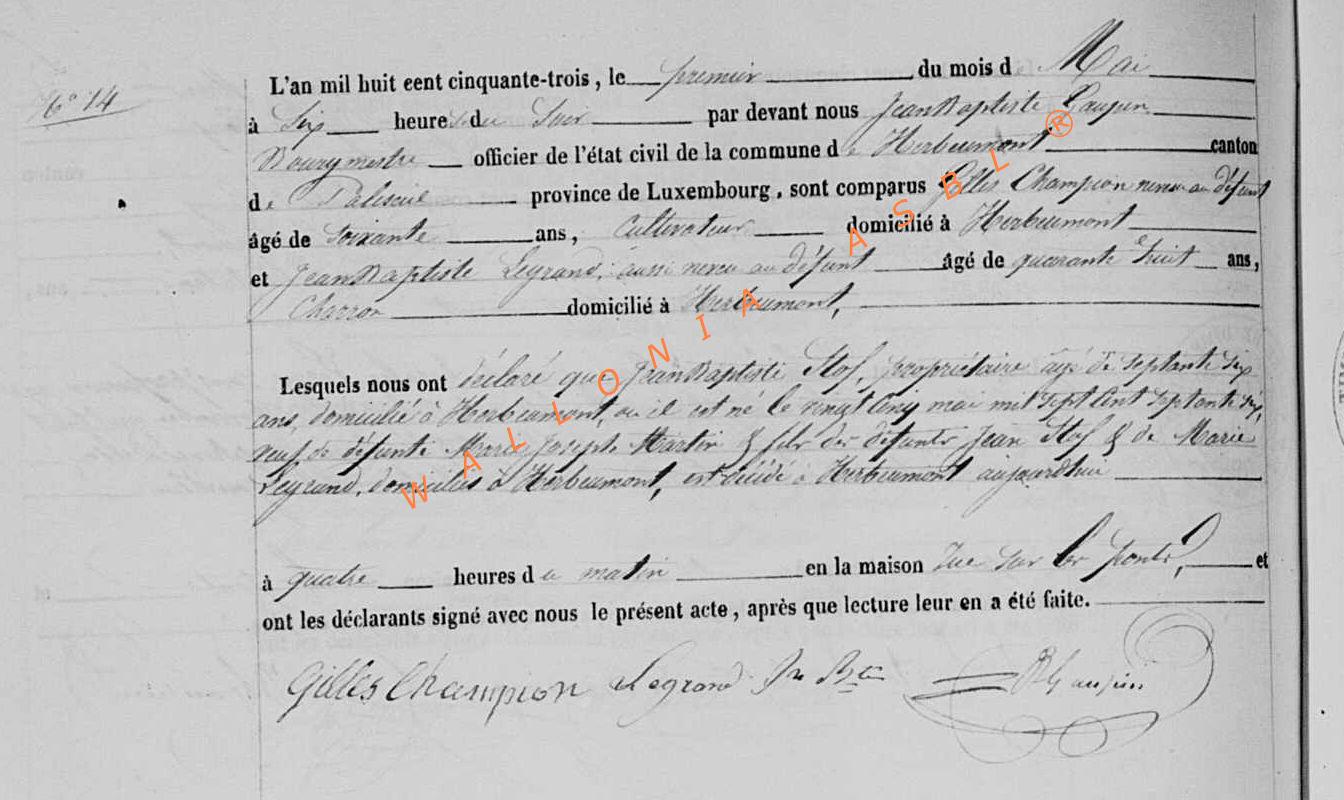 N° 14
L'an mil huit cent cinquante-trois, le premier du mois de Mai
à Six heures du Soir par devant nous Jean Baptiste
Bourgmestre officier de l'état civil de la commune de Herbeumont canton
de Paliseul province de Luxembourg, sont comparus Gilles Champion neveu au défunt
âgé de soixante ans, Cultivateur domicilié à Herbeumont
et Jean Baptiste Legrand, aussi neveu au défunt âgé de quarante huit ans,
Charron domicilié à Herbeumont,
Lesquels nous ont déclaré que Jean Baptiste Stof, propriétaire agé de septante six
ans, domicilié à Herbeumont, ou il est né le vingt cinq mai mil sept cent septante six,
veuf de défunte Marie Joseph Martin & fils des défunts Jean Stof & de Marie
Legrand, domiciliés à Herbeumont, est décédé à Herbeumont aujourdhui
à quatre heures du matin en la maison rue sur les ponts, et
ont les déclarants signé avec nous le présent acte, après que lecture leur en a été faite.
Gilles Champion Legrand Jn Bte
WALLONIA ASBL ®